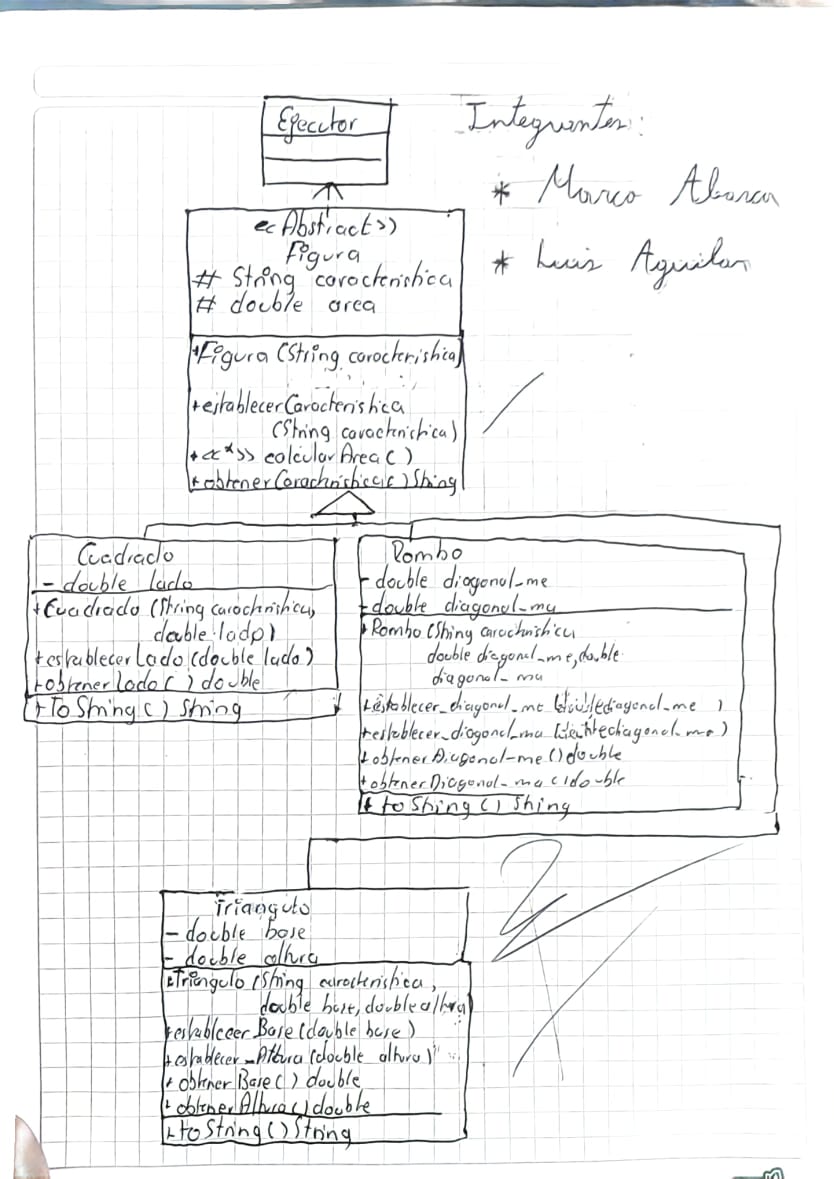 Ejecutor
Integrantes:
* Marco Abarca
* Luis Aguilar
<<Abstract>>
Figura
# String caracteristica
# double area
+Figura (String caracteristica)
+establecerCaracteristica
(String caracteristica)
+<<*>> calcularArea()
+obtenerCaracteristica() String
Cuadrado
- double lado
+Cuadrado (String caracteristica,
double lado)
+establecerLado (double lado)
+obtenerLado() double
+ToString() String
Rombo
- double diagonal_me
- double diagonal_ma
+Rombo (String caracteristica
double diagonal_me, double
diagonal_ma
+establecer_diagonal_me (double diagonal_me)
+establecer_diagonal_ma
+obtenerDiagonal_me() double
+obtenerDiagonal_ma() double
+toString() String
Triangulo
- double base
- double altura
+Triangulo (String caracteristica,
double base, double altura)
+establecerBase (double base)
+establecer_Altura (double altura)
+obtenerBase() double
+obtenerAltura() double
+toString() String